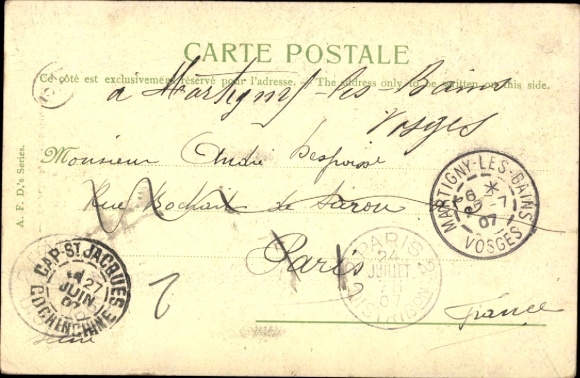 CARTE POSTALE
Ce côté est exclusivement réservé pour l'adresse. - The address only to be written on this side.
à Martigny-les-Bains
Vosges
A. F. D.'s Series.
Monsieur André
Rue Bochart de Saron
Paris
France
MARTIGNY-LES-BAINS
7
07
VOSGES
PARIS
24
JUILLET
07
DISTRIBUTION
CAP-ST JACQUES
27
JUIN
07
COCHINCHINE